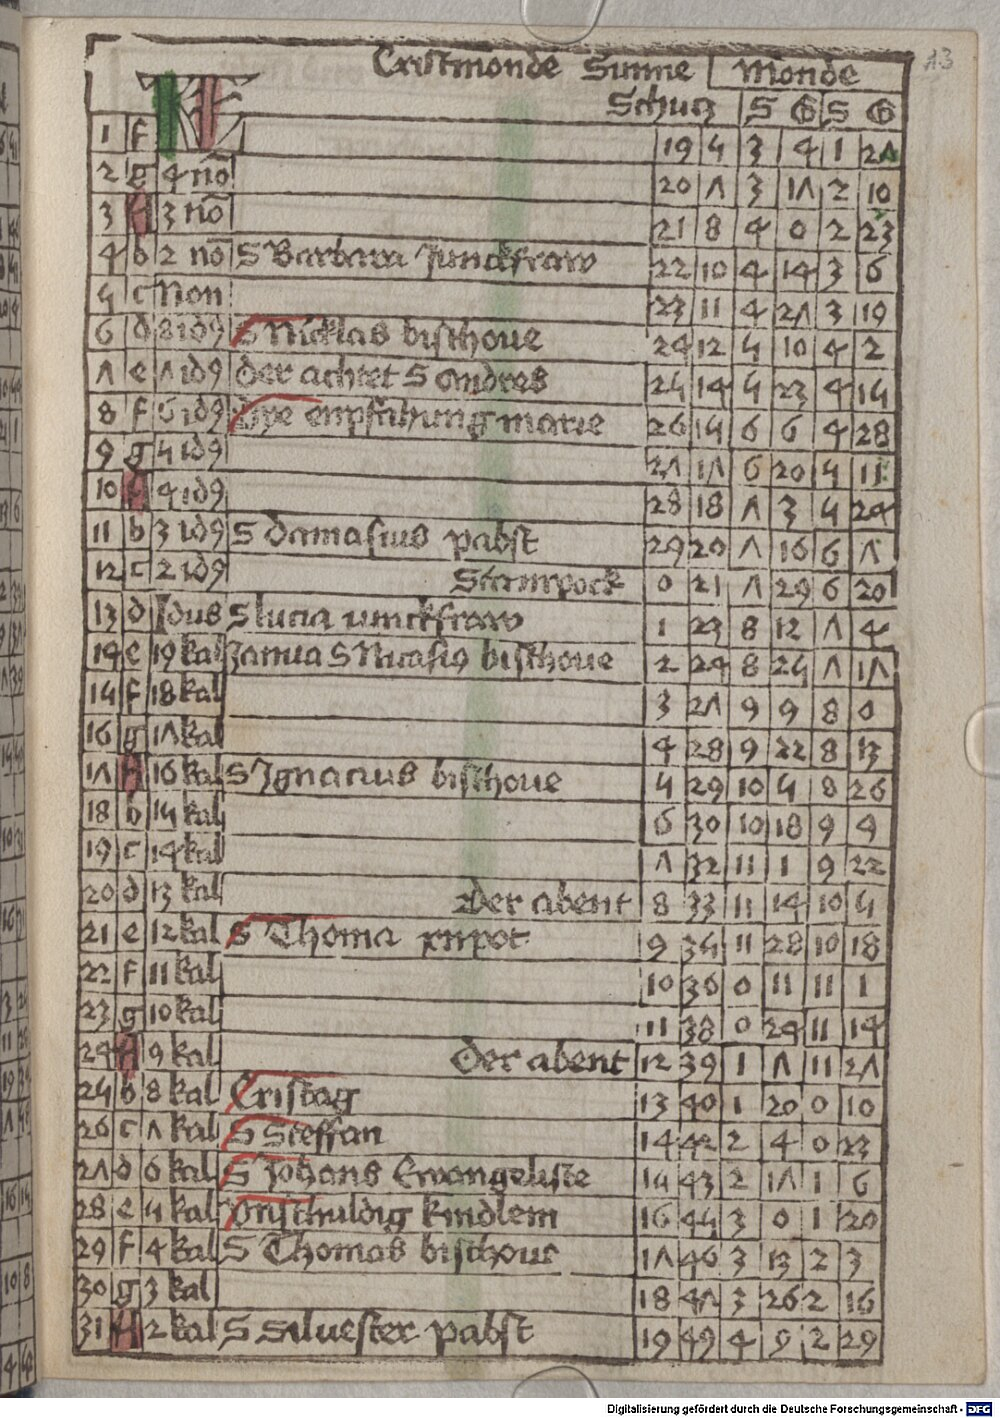 13
Cristmonde Sunne Monde
Schucz S G S G
1 f KL 19 5 3 4 1 27
2 g 4 nō 20 7 3 17 2 10
3 A 3 nō 21 8 4 0 2 23
4 b 2 nō S Barbara Junckfraw 22 10 4 14 3 6
5 c Non 23 11 4 27 3 19
6 d 8 idꝰ S Nicklas bischoue 24 12 5 10 4 2
7 e 7 idꝰ der achtet S Andres 25 14 5 23 4 15
8 f 6 idꝰ Dye enpfahung marie 26 15 6 6 4 28
9 g 5 idꝰ 27 17 6 20 5 11
10 A 4 idꝰ 28 18 7 3 5 24
11 b 3 idꝰ S Damasius pabst 29 20 7 16 6 7
12 c 2 idꝰ Stainpock 0 21 7 29 6 20
13 d Idus S lucia iunckfraw 1 23 8 12 7 4
14 e 19 kal Janua S Nicasiꝰ bischoue 2 24 8 25 7 17
15 f 18 kal 3 27 9 9 8 0
16 g 17 kal 4 28 9 22 8 13
17 A 16 kal S Ignacius bischoue 5 29 10 5 8 26
18 b 15 kal 6 30 10 18 9 9
19 c 14 kal 7 32 11 1 9 22
20 d 13 kal Der abent 8 33 11 14 10 5
21 e 12 kal S Thoma xiipot 9 35 11 28 10 18
22 f 11 kal 10 36 0 11 11 1
23 g 10 kal 11 38 0 24 11 14
24 A 9 kal Der abent 12 39 1 7 11 27
25 b 8 kal Cristag 13 40 1 20 0 10
26 c 7 kal S Steffan 14 42 2 4 0 23
27 d 6 kal S Johans Ewangeliste 15 43 2 17 1 6
28 e 5 kal Vnschuldig kindlein 16 45 3 0 1 20
29 f 4 kal S Thomas bischoue 17 46 3 13 2 3
30 g 3 kal 18 47 3 26 2 16
31 A 2 kal S Siluester pabst 19 49 4 9 2 29
Digitalisierung gefördert durch die Deutsche Forschungsgemeinschaft - DFG